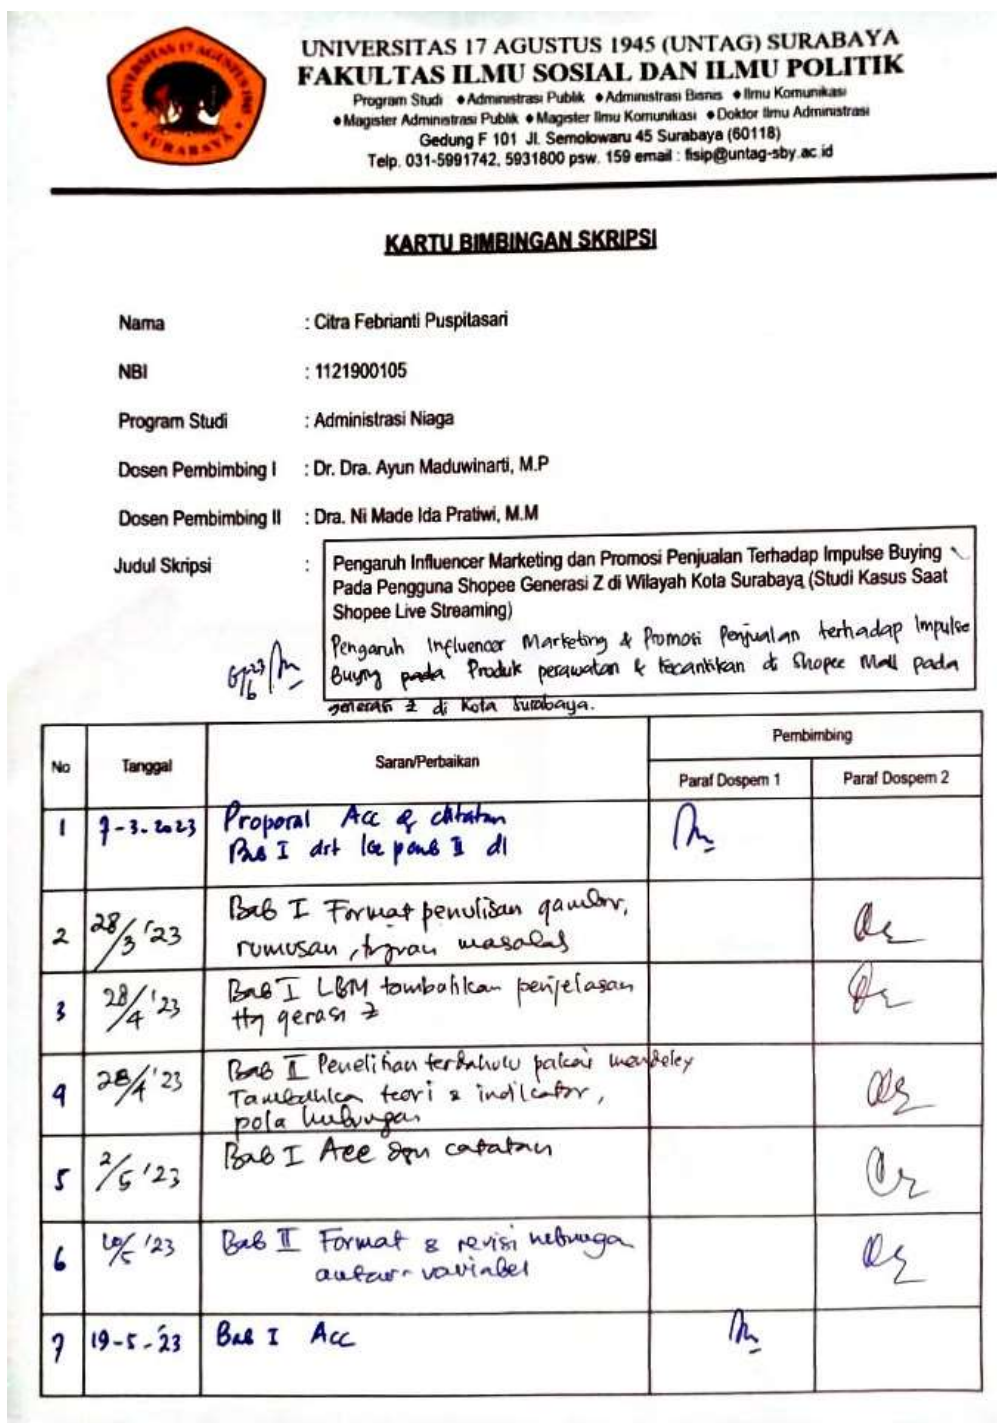 UNIVERSITAS 17 AGUSTUS 1945
SURABAYA
UNIVERSITAS 17 AGUSTUS 1945 (UNTAG) SURABAYA
FAKULTAS ILMU SOSIAL DAN ILMU POLITIK
Program Studi ♦Administrasi Publik ♦Administrasi Bisnis ♦Ilmu Komunikasi
♦Magister Administrasi Publik ♦Magister Ilmu Komunikasi ♦Doktor Ilmu Administrasi
Gedung F 101 Jl. Semolowaru 45 Surabaya (60118)
Telp. 031-5991742, 5931800 psw. 159 email : fisip@untag-sby.ac.id
KARTU BIMBINGAN SKRIPSI
Nama : Citra Febrianti Puspitasari
NBI : 1121900105
Program Studi : Administrasi Niaga
Dosen Pembimbing I : Dr. Dra. Ayun Maduwinarti, M.P
Dosen Pembimbing II : Dra. Ni Made Ida Pratiwi, M.M
Judul Skripsi : Pengaruh Influencer Marketing dan Promosi Penjualan Terhadap Impulse Buying
Pada Pengguna Shopee Generasi Z di Wilayah Kota Surabaya (Studi Kasus Saat
Shopee Live Streaming)
Pengaruh Influencer Marketing & Promosi Penjualan terhadap Impulse
Buying pada Produk perawatan & kecantikan di Shopee Mall pada
generasi Z di Kota Surabaya.
No Tanggal Saran/Perbaikan Pembimbing
Paraf Dospem 1 Paraf Dospem 2
1 7-3-2023 Proposal Acc
Bab I
2 28/3 '23 Bab I Format penulisan gambar,
rumusan, tujuan masalah
3 28/4 '23 Bab I LBM tambahkan penjelasan
ttg gerasi Z
4 28/4 '23 Bab II Penelitian terdahulu pakai mendeley
teori & indikator,
pola hubungan
5 2/5 '23 Bab I Acc dgn catatan
6 10/5 '23 Bab II Format & revisi
antar variabel
7 19-5-'23 Bab I Acc